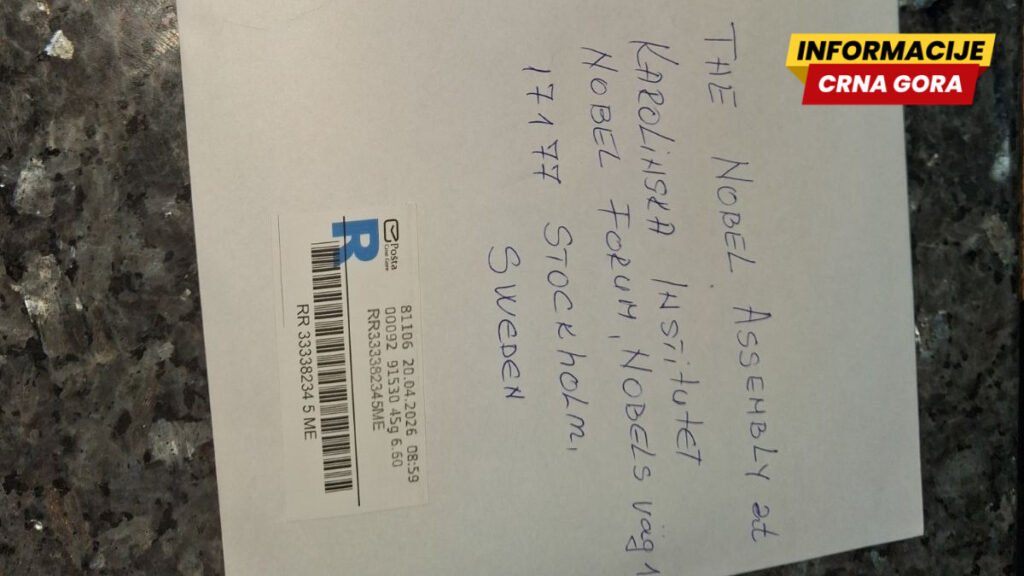 INFORMACIJE
CRNA GORA
THE NOBEL ASSEMBLY at
KAROLINSKA INStitutet
NOBEL FORUM, NOBELS väg 1
17177 STOCKHOLM,
SWEDEN
R
Pošta
Crne Gore
81106 20.04.2026 08:59
00092 91530 45g 6.60
RR333382345ME
RR 33338234 5 ME